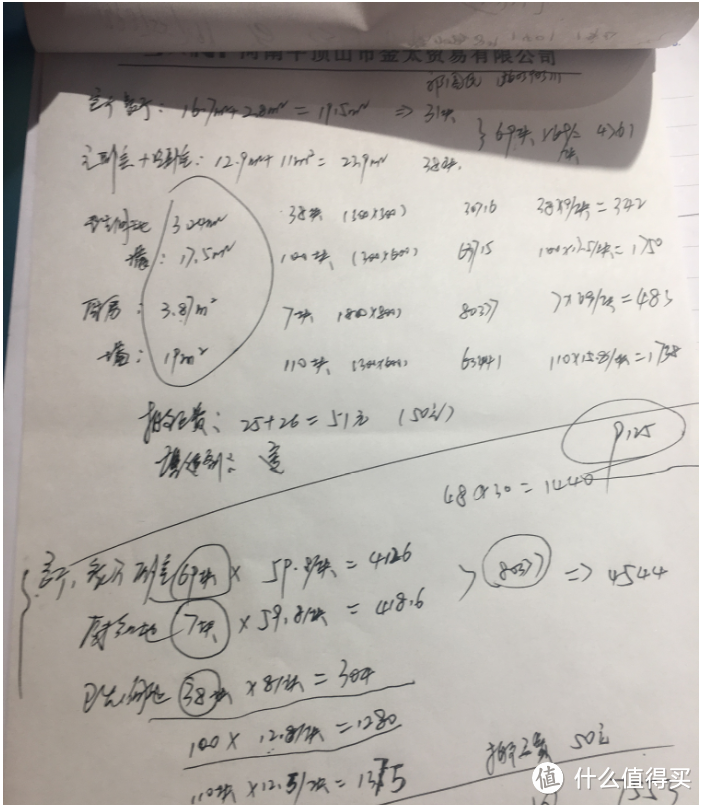 河南平顶山市金太贸易有限公司
客厅餐厅: 16.7m²+2.8m² = 19.5m² => 31块
69块 ×69/块 4761
主卧室+次卧室: 12.9m²+11m² = 23.9m² 38块.
卫生间地 3.24m² 38块 (300×300) 30716 38×9/块 = 342
墙: 17.5m² 100块 (300×600) 63715 100×17.5/块 = 1750
厨房: 3.87m² 7块 (800×800) 80377 7×69/块 = 483
墙: 19m² 110块 (300×600) 110×15.8/块 = 1738
搬运费: 25+26 = 51元 (50元)
填缝剂: 送
P125
48×30 = 1440
客厅, 餐厅 卧室 69块 × 59.8/块 = 4126
80377 => 4544
厨房地 7块 × 59.8/块 = 418.6
卫生间地 38块 × 8/块 = 304
100 × 12.8/块 = 1280
搬运费 50元
110块 × 12.5/块 = 1375
值 什么值得买